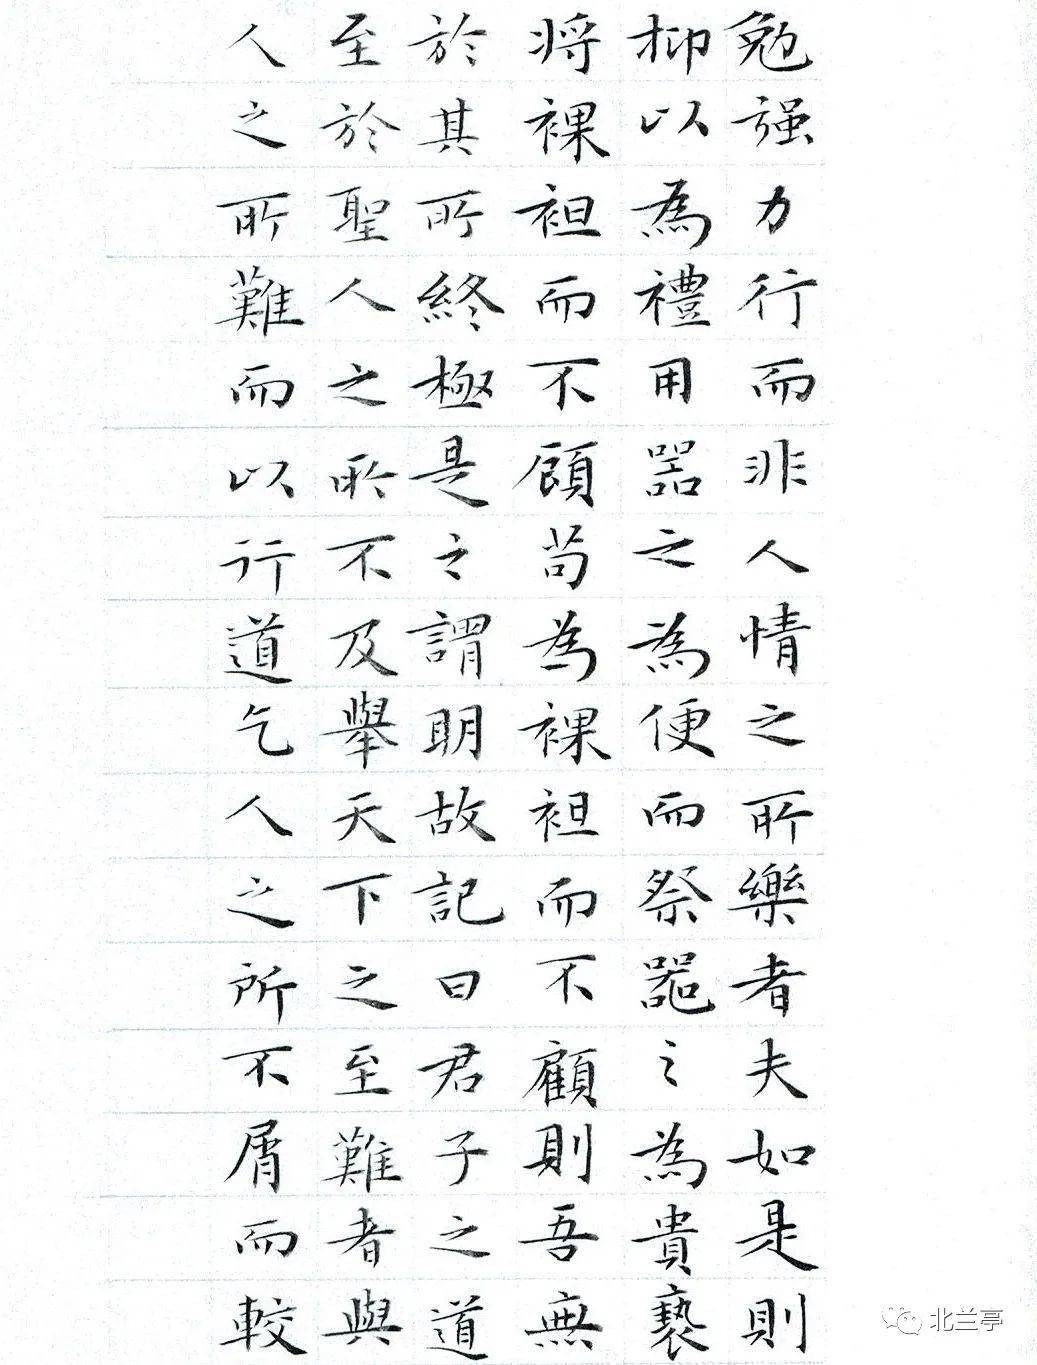 勉强力行而非人情之所樂者夫如是則
抑以為禮用器之為便而祭器之為貴褻
将裸袒而不顧苟為裸袒而不顧則吾無
於其所終極是之謂明故記曰君子之道
至於聖人之所不及舉天下之至難者與
人之所難而以行道乞人之所不屑而較
北兰亭